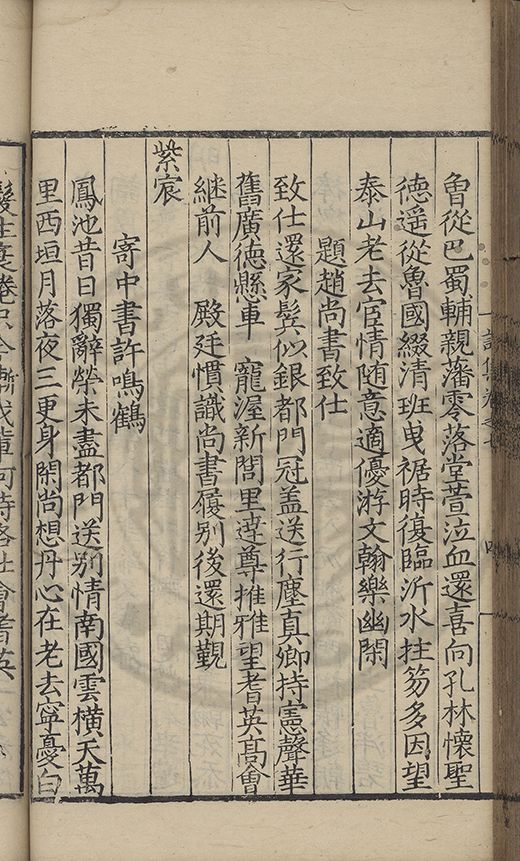 魯從巴蜀輔親藩零落堂萱泣血還喜向孔林懷聖
德遥從魯國綴清班曳裾時復臨沂水拄笏多因望
泰山老去宦情随意適優游文翰樂幽閑
題趙尚書致仕
致仕還家鬂似銀都門冠盖送行塵真卿持憲聲華
舊廣德懸車　寵渥新閭里達尊推雅望耆英髙會
継前人　殿廷慣識尚書履别後還期覲
紫宸
寄中書許鳴鶴
鳳池昔日獨辭榮未盡都門送别情南國雲横天萬
里西垣月落夜三更身閑尚想丹心在老去寧憂白
髪生